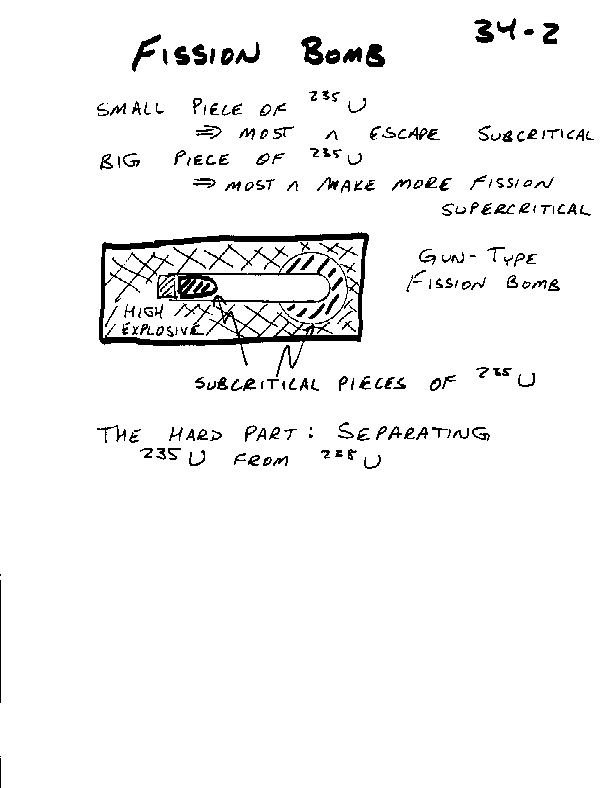 34-2
FISSION BOMB
SMALL PIECE OF ²³⁵U
⇒ MOST n ESCAPE SUBCRITICAL
BIG PIECE OF ²³⁵U
⇒ MOST n MAKE MORE FISSION
SUPERCRITICAL
GUN-TYPE
FISSION BOMB
HIGH
EXPLOSIVE
SUBCRITICAL PIECES OF ²³⁵U
THE HARD PART: SEPARATING
²³⁵U FROM ²³⁸U